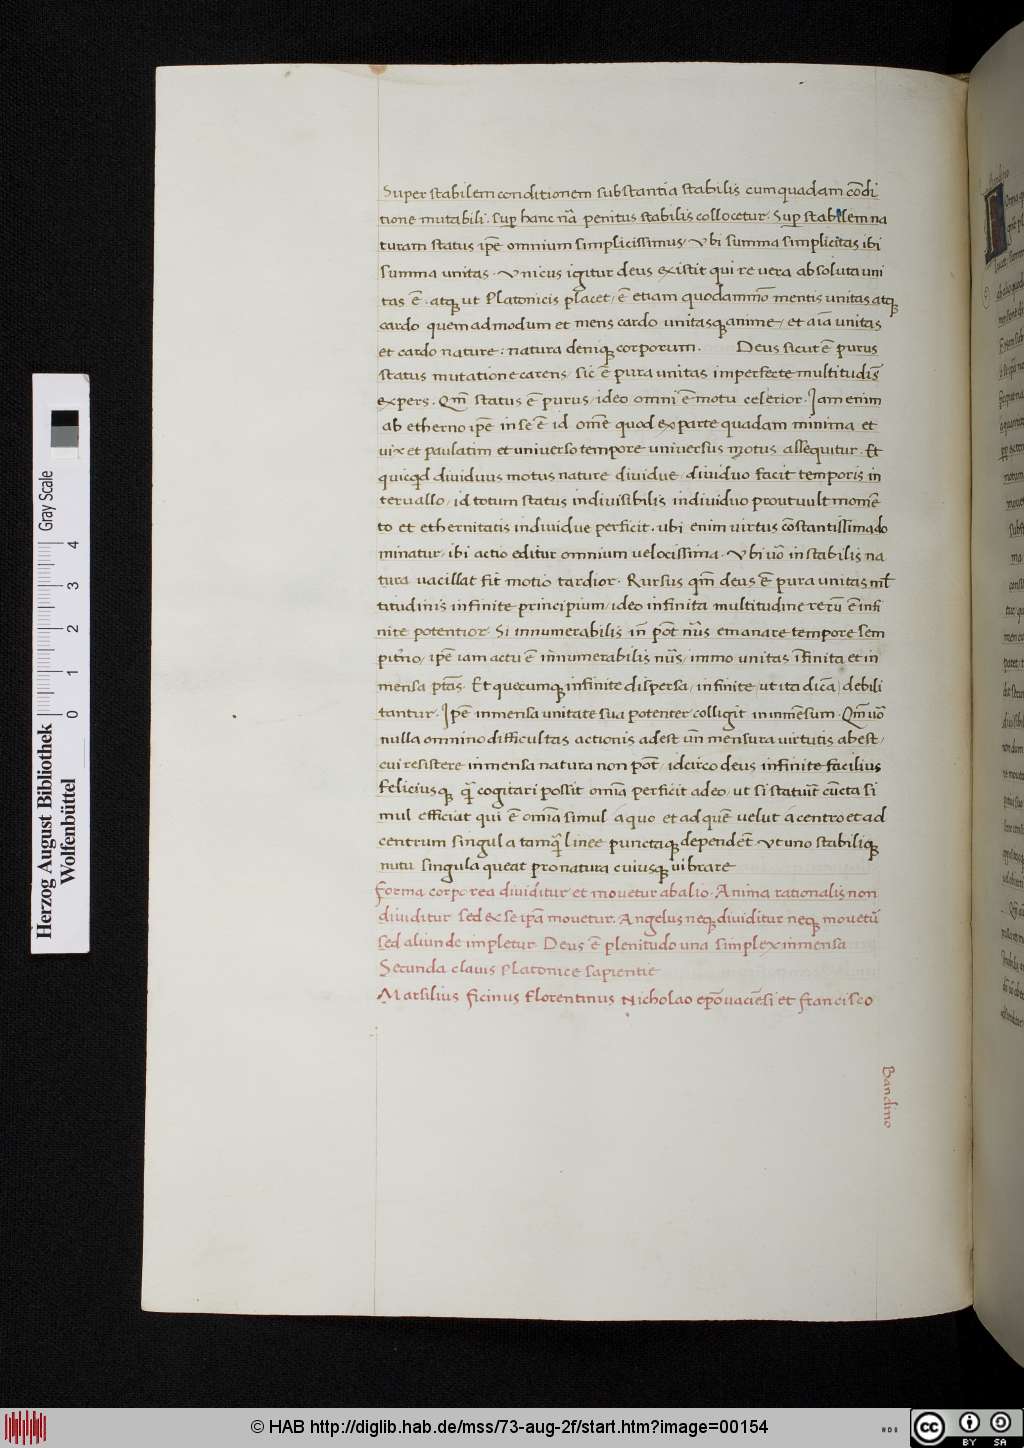 Super stabilem conditionem substantia stabilis cum quadam cōdi
tione mutabili. Sup hanc nā penitus stabilis collocetur. Sup stabilem na
turam status ipē omnium simplicissimus/ Vbi summa simplicitas ibi
summa unitas. Vnicus igitur deus existit qui re vera absoluta uni
tas ē. atq ut Platonicis placet/ ē etiam quodammō mentis unitas atq
cardo quemadmodum et mens cardo unitasq anime/ et aīa unitas
et cardo nature: natura deniq corporum. Deus sicut ē purus
status mutatione carens/ sic ē pura unitas imperfecte multitudīs
expers. Qm̄ status ē purus/ ideo omni ē motu celerior. Jam enim
ab etherno ipē in se ē id omē quod ex parte quadam minima et
vix et paulatim et universo tempore universus motus assequitur. Et
quicqd dividuus motus nature dividue/ dividuo facit temporis in
tervallo/ id totum status indivisibilis individuo prout vult momē
to et ethernitatis individue perficit. ubi enim virtus cōstantissima do
minatur/ ibi actio editur omnium velocissima. Vbi vō instabilis na
tura vacillat fit motio tardior. Rursus qm̄ deus ē pura unitas ml̄
titudinis infinite principium/ ideo infinita multitudine rerū ē infi
nite potentior. Si innumerabilis in̄ pōt nūis emanare tempore sem
pitno/ ipē iam actu ē innumerabilis nūis/ immo unitas īfinita et in
mensa ptās. Et quecumq infinite dispersa/ infinite/ ut ita dicā/ debili
tantur. Jpē inmensa unitate sua potenter colligit in inmēsum. Qm̄ vō
nulla omnino difficultas actionis adest un̄ mensura virtutis abest/
cui resistere inmensa natura non pōt/ idcirco deus infinite facilius
feliciusq qā cogitari possit omīa perficit adeo/ ut si statuīt cūcta si
mul efficiat qui ē omīa simul a quo et ad quē velut a centro et ad
centrum singula tamqā linee punctaq dependēt Vt uno stabiliq
nutu singula queat pro natura cuiusq vibrare
Forma corporea dividitur et movetur ab alio. Anima rationalis non
dividitur sed ex se ipā movetur. Angelus neq dividitur neq movetū
sed aliunde impletur. Deus ē plenitudo una simplex inmensa
Secunda clavis Platonice sapientie
Marsilius ficinus florentinus Nicholao epō vaciēsi et francisco
Bandino
Herzog August Bibliothek
Wolfenbüttel
Gray Scale
0 1 2 3 4
© HAB http://diglib.hab.de/mss/73-aug-2f/start.htm?image=00154
cc BY SA